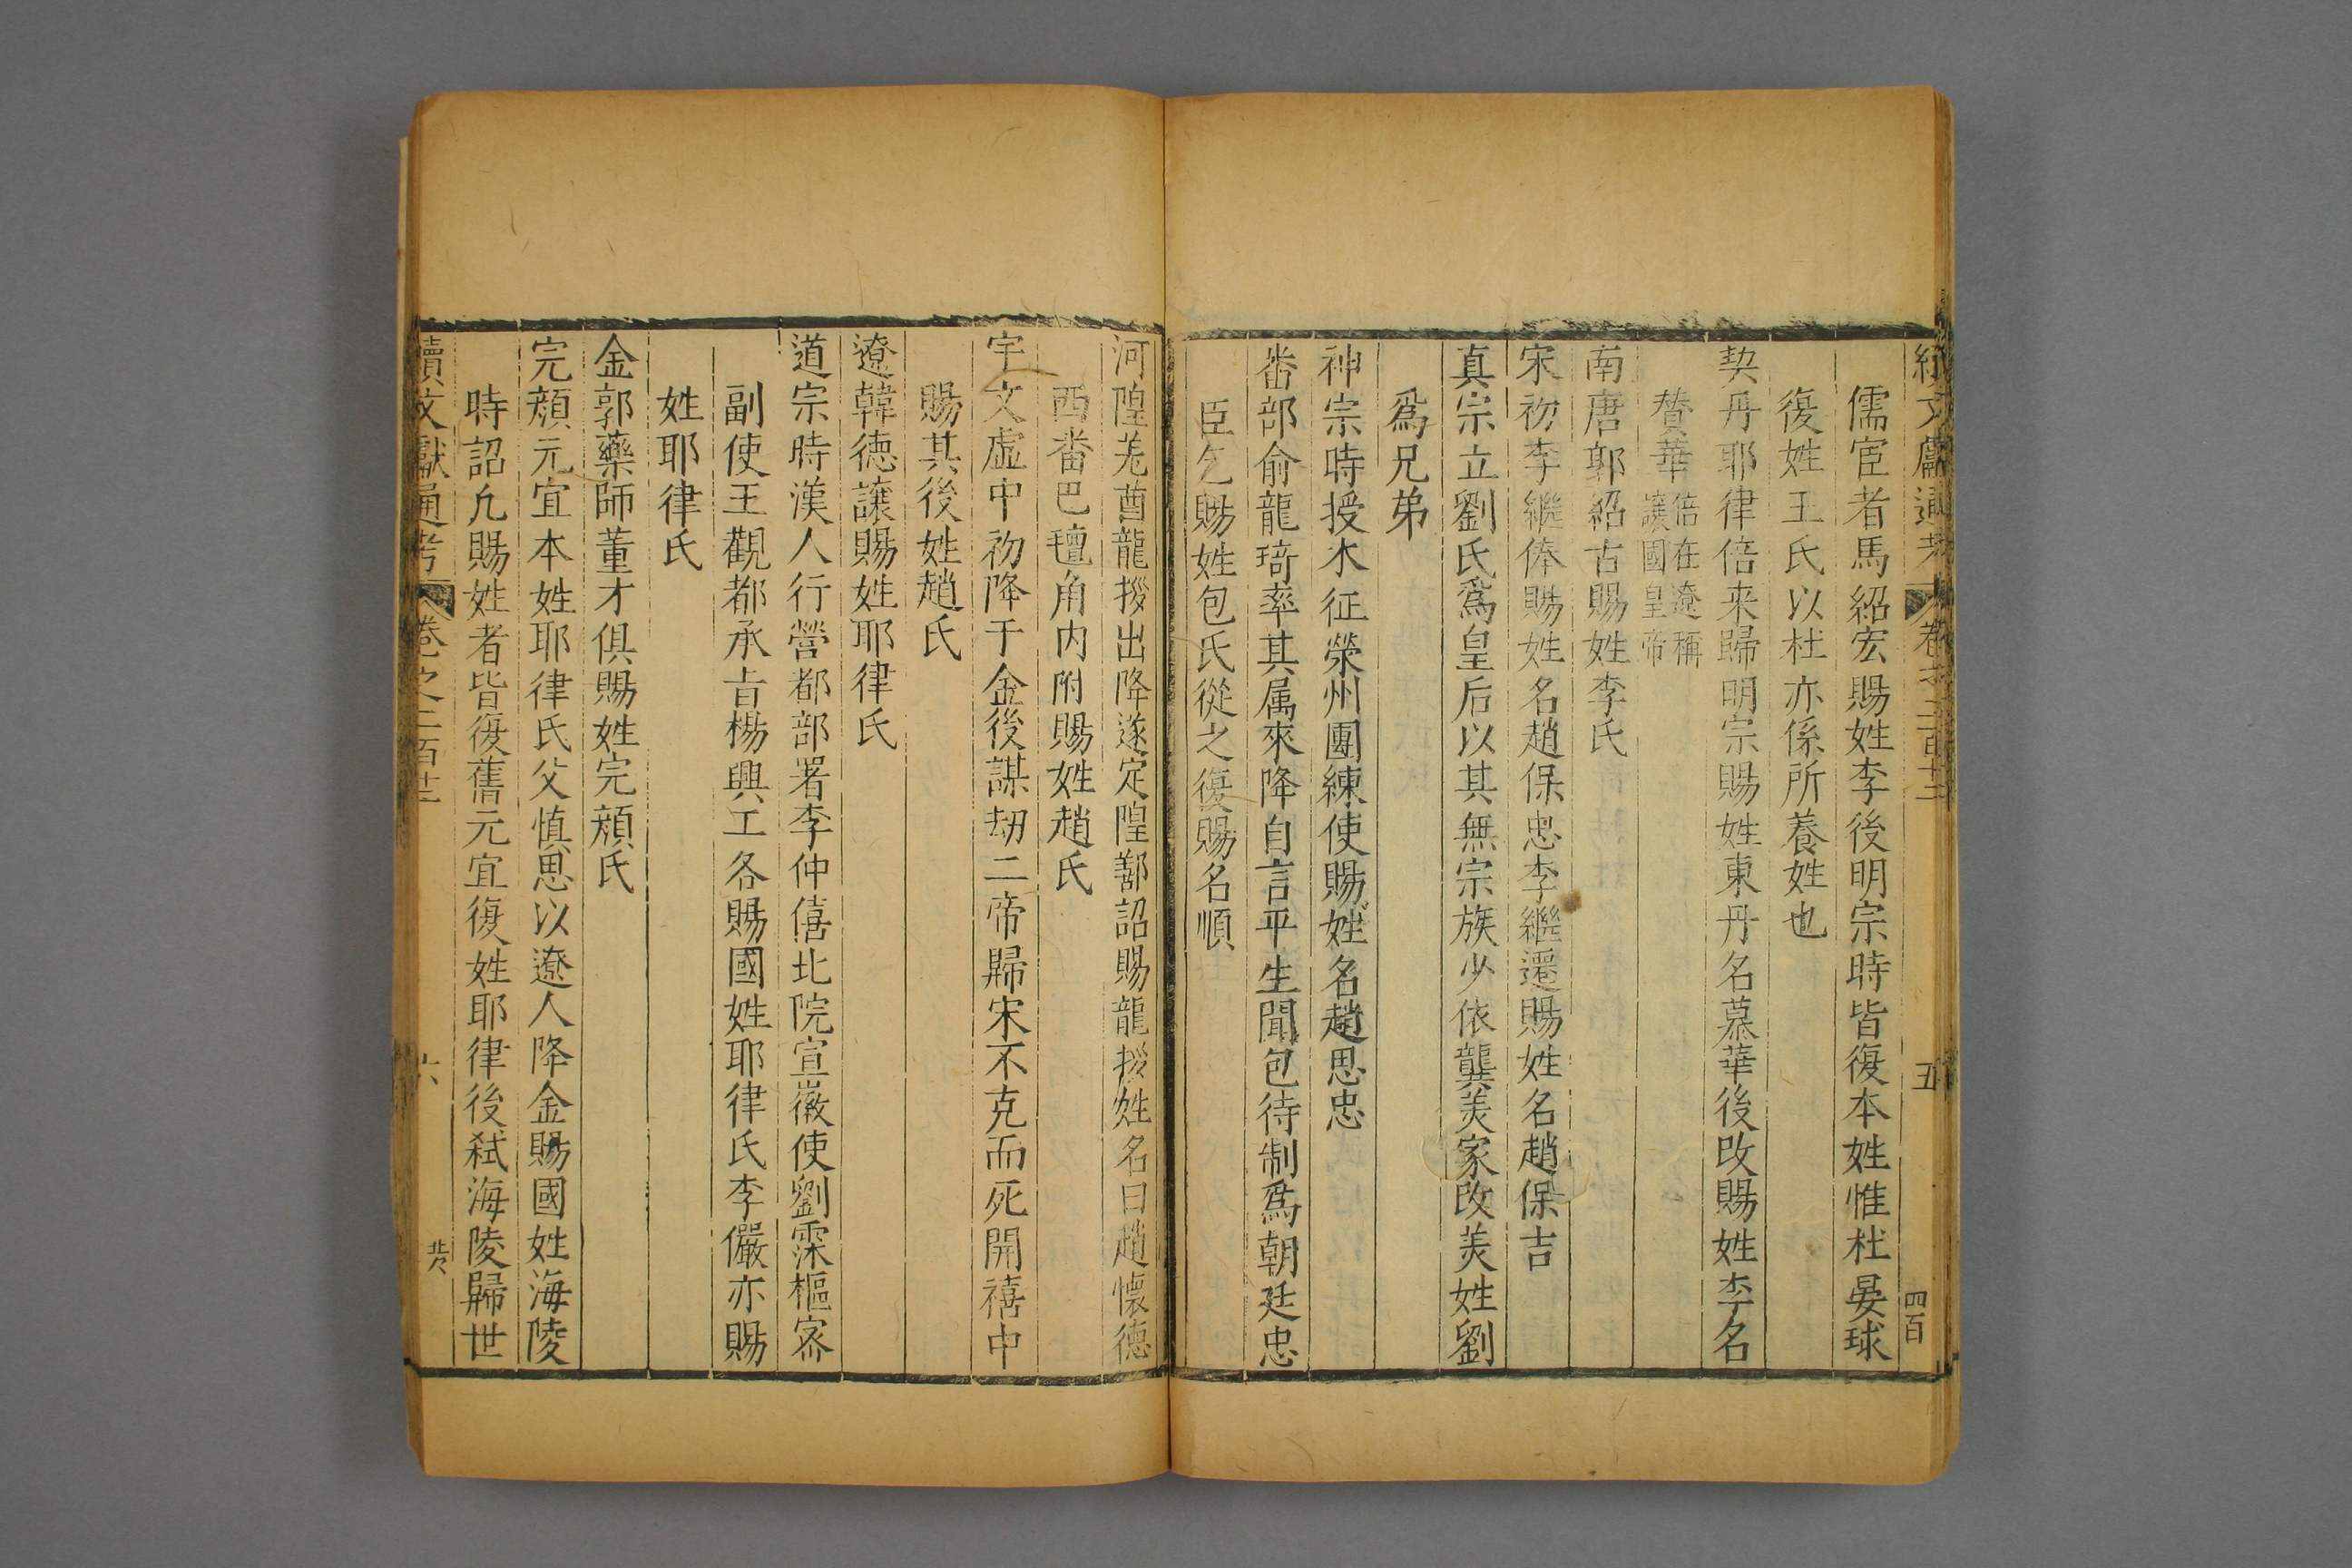 續文獻通考 卷之二百十二 五 四百
儒宦者馬紹宏賜姓李後明宗時皆復本姓惟杜晏球
復姓王氏以杜亦係所養姓也
契丹耶律倍来歸明宗賜姓東丹名慕華後改賜姓李名
贊華倍在遼稱讓國皇帝
南唐郭紹古賜姓李氏
宋初李繼俸賜姓名趙保忠李繼遷賜姓名趙保吉
真宗立劉氏爲皇后以其無宗族少依龔美家改美姓劉
爲兄弟
神宗時授木征榮州團練使賜姓名趙思忠
畨部俞龍琦率其属來降自言平生聞包待制爲朝廷忠
臣乞賜姓包氏從之復賜名順
河隍羌酋龍拶出降遂定隍鄯詔賜龍拶姓名曰趙懷德
西畨巴氊角内附賜姓趙氏
宇文虛中初降于金後謀刼二帝歸宋不克而死開禧中
賜其後姓趙氏
遼韓德讓賜姓耶律氏
道宗時漢人行營都部署李仲僖北院宣徽使劉霂樞宻
副使王觀都承旨楊興工各賜國姓耶律氏李儼亦賜
姓耶律氏
金郭藥師董才俱賜姓完顏氏
完顏元宜本姓耶律氏父慎思以遼人降金賜國姓海陵
時詔凢賜姓者皆復舊元宜復姓耶律後弑海陵歸世
續文獻通考 卷之二百十二 六